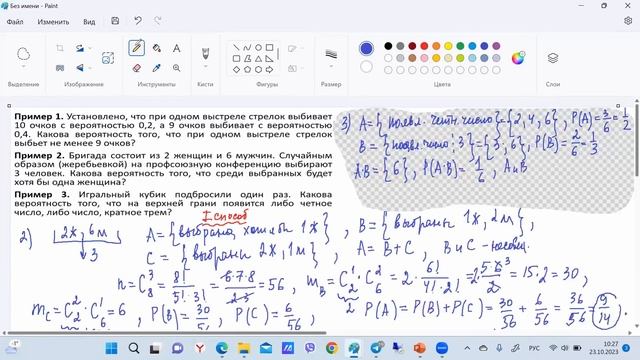 Без имени - Paint
Файл Изменить Вид
Выделение Изображение Инструменты Кисти Фигуры Размер Цвета
Пример 1. Установлено, что при одном выстреле стрелок выбивает
10 очков с вероятностью 0,2, а 9 очков выбивает с вероятностью
0,4. Какова вероятность того, что при одном выстреле стрелок
выбьет не менее 9 очков?
Пример 2. Бригада состоит из 2 женщин и 6 мужчин. Случайным
образом (жеребьевкой) на профсоюзную конференцию выбирают
3 человек. Какова вероятность того, что среди выбранных будет
хотя бы одна женщина?
Пример 3. Игральный кубик подбросили один раз. Какова
вероятность того, что на верхней грани появится либо четное
число, либо число, кратное трем?
3) A={появл. четн. число}={2,4,6}, P(A)=3/6=1/2
B={появл. число ⋮ 3}={3,6}, P(B)=2/6=1/3
A·B={6}, P(A·B)=1/6, A и B
I способ
2) 2ж, 6м A={выбрана хотя бы 1ж}, B={выбраны 1ж, 2м},
3 C={выбраны 2ж, 1м}, A=B+C, B и C -
n=C₈³=8!/(5!·3!)=6·7·8/(2·3)=56, m_B=C₂¹·C₆²=2·6!/(4!·2!)=2·5·6/2=15·2=30,
m_C=C₂²·C₆¹=6, P(B)=30/56, P(C)=6/56, P(A)=P(B)+P(C)=30/56+6/56=36/56=9/14.
-1° РУС 10:27
23.10.2023